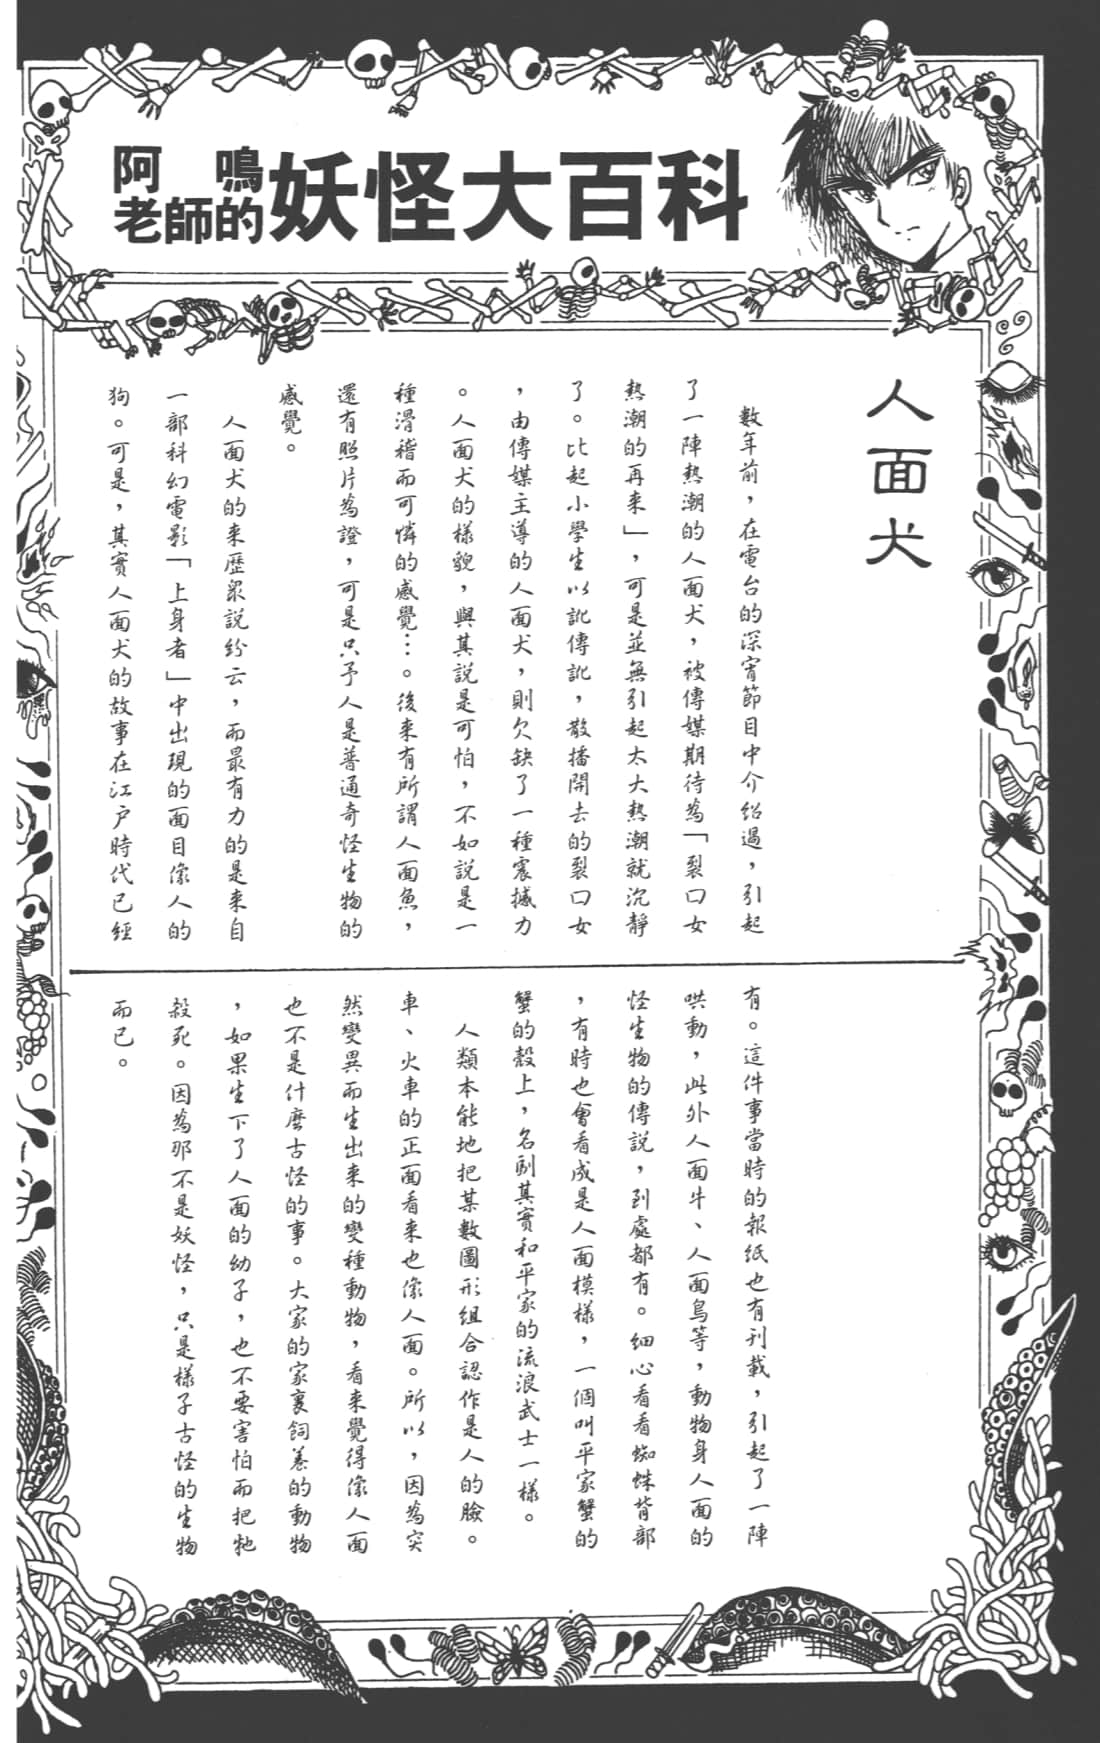 阿鳴老師的妖怪大百科
人面犬
數年前，在電台的深宵節目中介紹過，引起
了一陣熱潮的人面犬，被傳媒期待為「裂口女
熱潮的再来」，可是並無引起太大熱潮就沉靜
了。比起小學生以訛傳訛，散播開去的裂口女
，由傳媒主導的人面犬，則欠缺了一種震撼力
。人面犬的樣貌，與其説是可怕，不如説是一
種滑稽而可憐的感覺…。後来有所謂人面魚，
還有照片為證，可是只予人是普通奇怪生物的
感覺。
人面犬的来歷衆説紛云，而最有力的是来自
一部科幻電影「上身者」中出現的面目像人的
狗。可是，其實人面犬的故事在江户時代已經
有。這件事當時的報紙也有刊載，引起了一陣
哄動，此外人面牛、人面鳥等，動物身人面的
怪生物的傳説，到處都有。細心看看蜘蛛背部
，有時也會看成是人面模樣，一個叫平家蟹的
蟹的殼上，名副其實和平家的流浪武士一樣。
人類本能地把某數圖形組合認作是人的臉。
車、火車的正面看来也像人面。所以，因為突
然變異而生出来的變種動物，看来覺得像人面
也不是什麼古怪的事。大家的家裏飼養的動物
，如果生下了人面的幼子，也不要害怕而把牠
殺死。因為那不是妖怪，只是樣子古怪的生物
而已。